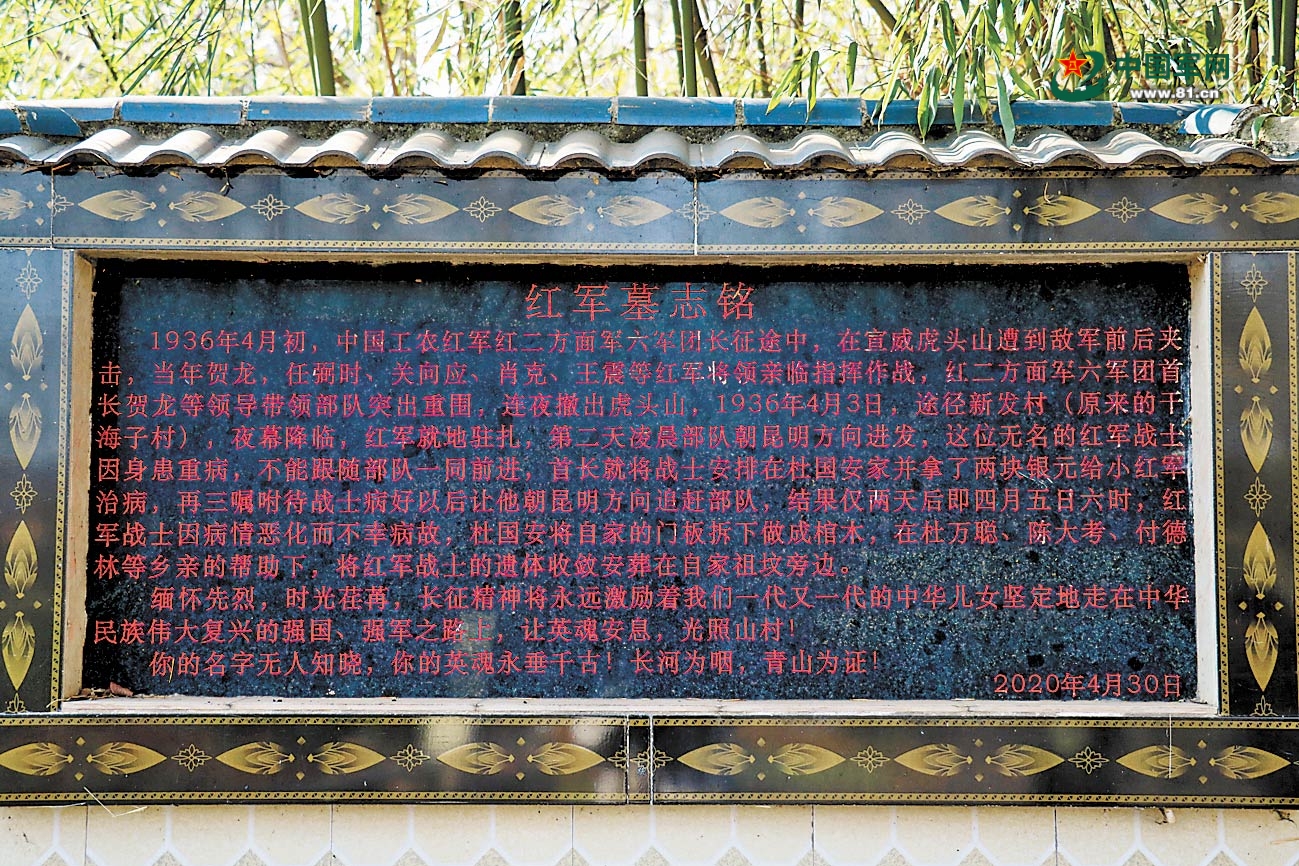 中国军网
www.81.cn
红军墓志铭
1936年4月初，中国工农红军红二方面军六军团长征途中，在宣威虎头山遭到敌军前后夹
击，当年贺龙，任弼时、关向应、肖克、王震等红军将领亲临指挥作战，红二方面军六军团首
长贺龙等领导带领部队突出重围，连夜撤出虎头山，1936年4月3日，途径新发村（原来的干
海子村），夜幕降临，红军就地驻扎，第二天凌晨部队朝昆明方向进发，这位无名的红军战士
因身患重病，不能跟随部队一同前进，首长就将战士安排在杜国安家并拿了两块银元给小红军
治病，再三嘱咐待战士病好以后让他朝昆明方向追赶部队，结果仅两天后即四月五日六时，红
军战士因病情恶化而不幸病故，杜国安将自家的门板拆下做成棺木，在杜万聪、陈大考、付德
林等乡亲的帮助下，将红军战士的遗体收敛安葬在自家祖坟旁边。
缅怀先烈，时光荏苒，长征精神将永远激励着我们一代又一代的中华儿女坚定地走在中华
民族伟大复兴的强国、强军之路上，让英魂安息，光照山村！
你的名字无人知晓，你的英魂永垂千古！长河为咽，青山为证！
2020年4月30日